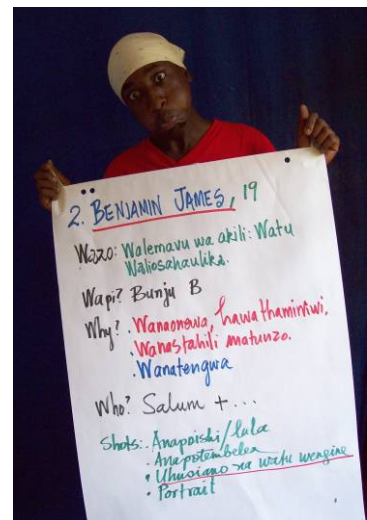 2. BENJAMIN JAMES, 19
Wazo: Walemavu wa akili: Watu
Waliosahaulika.
Wapi? Bunju B
Why? . Wanaonewa, hawathaminiwi.
. Wanastahili matunzo.
. Wanatengwa
Who? Salum + ...
Shots: . Anapoishi/lala
. Anapotembelea
. Uhusiano na watu wengine
. Portrait